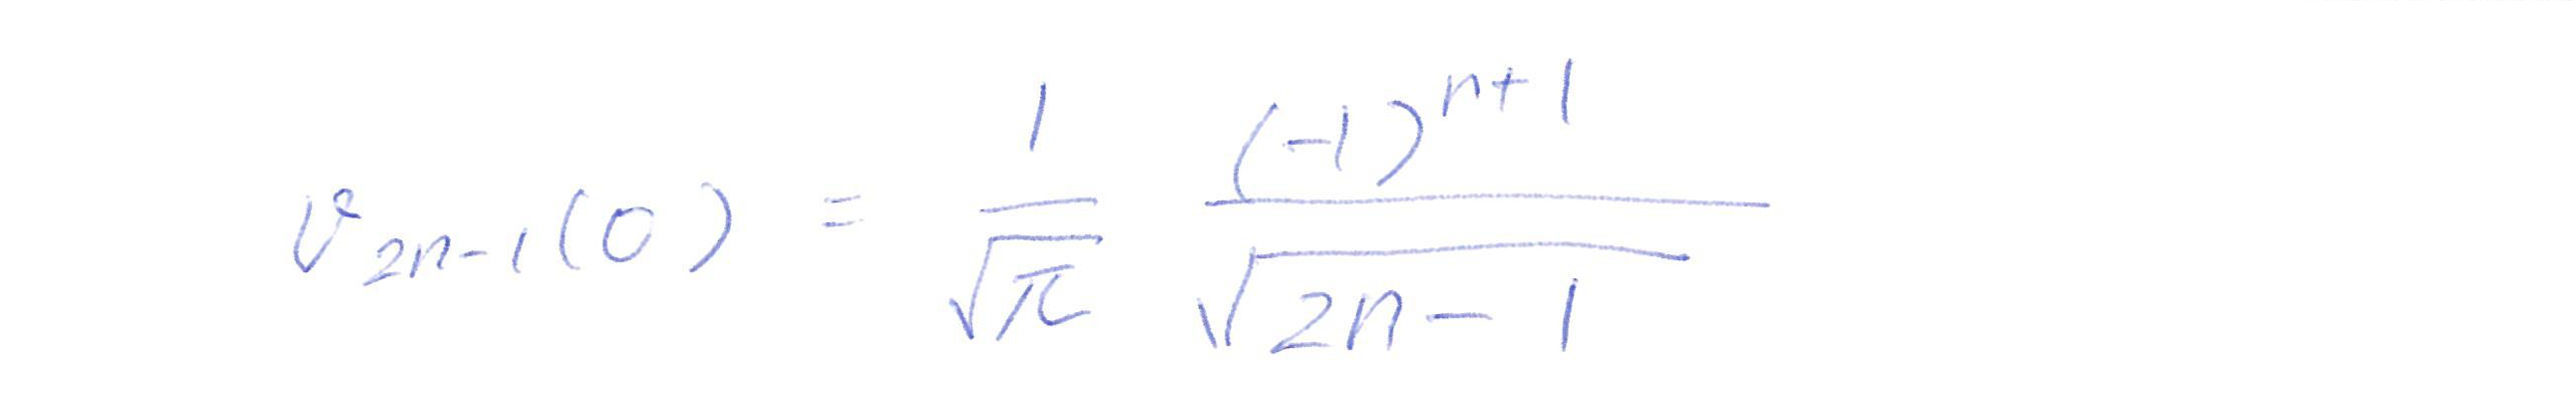 $v_{2n-1}(0) = \frac{1}{\sqrt{\pi}} \frac{(-1)^{n+1}}{\sqrt{2n-1}}$